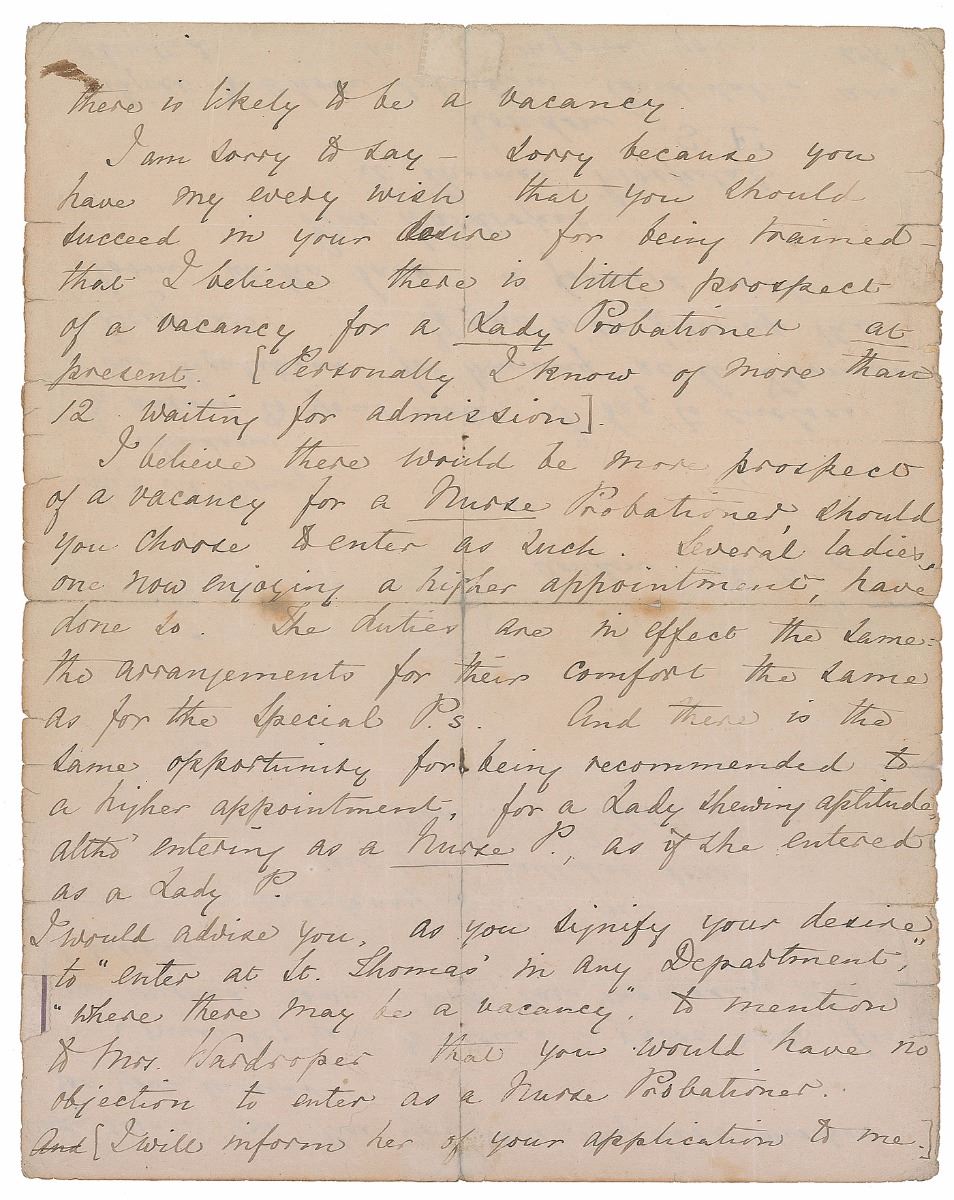 there is likely to be a vacancy.
I am sorry to say - sorry because you
have my every wish that you should
succeed in your desire for being trained -
that I believe there is little prospect
of a vacancy for a Lady Probationer at
present. [Personally I know of more than
12 waiting for admission].
I believe there would be more prospect
of a vacancy for a Nurse Probationer, should
you choose to enter as such. Several ladies,
one now enjoying a higher appointment, have
done so. The duties are in effect the same:
the arrangements for their comfort the same
as for the Special P.s. And there is the
same opportunity for being recommended to
a higher appointment, for a Lady shewing aptitude,
altho' entering as a Nurse P., as if she entered
as a Lady P.
I would advise you, as you signify your desire
to "enter at St. Thomas' in any Department,"
"where there may be a vacancy", to mention
to Mrs. Wardroper that you would have no
objection to enter as a Nurse Probationer.
And [I will inform her of your application to me.]